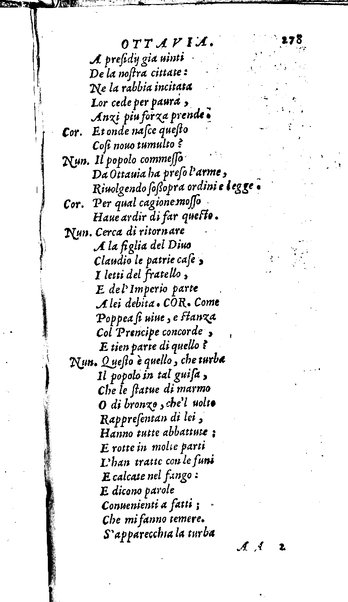 OTTAVIA. 278
A presidij gia uinti
De la nostra cittate:
Ne la rabbia incitata
Lor cede per paura,
Anzi piu forza prende.
Cor. Et onde nasce questo
Cosi nouo tumulto?
Nun. Il popolo commesso
Da Ottauia ha preso l'arme,
Riuolgendo sossopra ordini e legge.
Cor. Per qual cagione mosso
Haue ardir di far questo.
Nun. Cerca di ritornare
A la figlia del Diuo
Claudio le patrie case,
I letti del fratello,
E de l'Imperio parte
A lei debita. COR. Come
Poppea si uiue, e stanza
Col Prencipe concorde,
E tien parte di quello?
Nun. Questo è quello, che turba
Il popolo in tal guisa,
Che le statue di marmo
O di bronzo, che'l uolto
Rappresentan di lei,
Hanno tutte abbattute;
E rotte in molte parti
L'han tratte con le funi
E calcate nel fango:
E dicono parole
Conuenienti a fatti;
Che mi fanno temere.
S'apparecchia la turba
A A 2